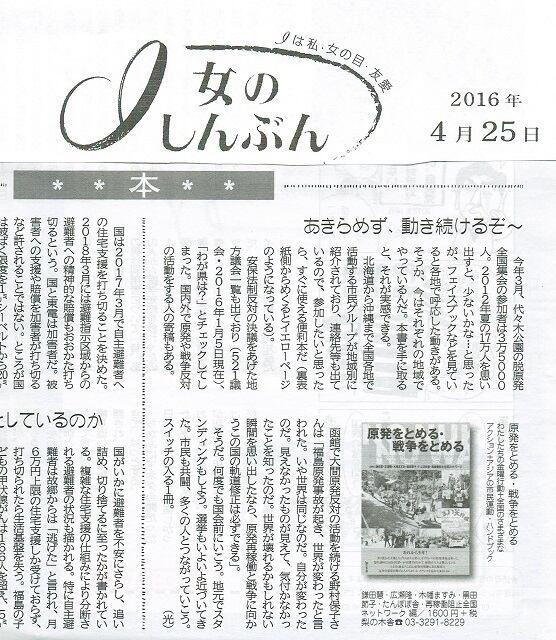 Iは私・女の目・友愛
I 女の
しんぶん
2016年
4月25日
**本**
あきらめず、動き続けるぞ〜
今年3月、代々木公園の脱原発
全国集会の参加者は3万5000
人。2012年夏の17万人を思い
出すと、少ないかな!と思った
が、フェイスブックなどを見てい
ると各地で呼応した動きがある。
そうか、今はそれぞれの地域で
やっているんだ。本書を手に取る
と、それが実感できる。
北海道から沖縄まで全国各地で
活動する市民グループが地域別に
紹介されており、連絡先等も出て
いるので、参加したいと思った
ら、すぐに使える便利本だ(裏表
紙側からめくるとイエローページ
のようになっている)。
安保法制反対の決議をあげた地
方議会一覧も出ており(521議
会・2016年1月5日現在)、
「わが県は?」とチェックしてし
まった。国内外で原発や戦争反対
の活動をする人の寄稿もある。
函館で大間原発反対の活動を続ける野村保子さ
んは「福島原発事故が起き、世界が変わったと言
われた。いや世界は同じなのだ。自分が変わった
のだ。見えなかったものが見えて、気付かなかっ
たことを知ったのだ。世界が壊れるかもしれない
瞬間を思い出したなら、原発再稼働と戦争に向か
うこの国の軌道修正は必ずできる」。
そうだ。何度でも国会前にいこう。地元でスタ
ンディングもしよう。選挙もいよいよ近づいてき
た。市民も共闘、多くの人とつながっていこう。
スイッチの入る1冊。
(光)
原発をとめる・戦争をとめる
わたしたちの金曜行動と全国のさまざまな
アクション・アジアの市民運動・ハンドブック
原発をとめる・
戦争をとめる
鎌田慧・広瀬隆・木幡ますみ・黒田
節子・たんぽぽ舎・再稼働阻止全国
ネットワーク 編/1600円+税
梨の木舎☎03-3291-8229
国は2017年3月で自主避難者へ
の住宅支援を打ち切ることを決めた。
2018年3月には避難指示区域からの
避難者への精神的な賠償もおおかた打ち
切るという。国と東電は加害者だ。被
害者への支援や賠償を加害者が打ち切る
など許されることではない。ところが国
としているのか
国がいかに避難者を不安にさらし、追い
詰め、切り捨てるに至ったかが書かれてい
る。複雑な住宅支援の仕組みにより分断さ
れる避難者の状況も描かれる。特に自主避
難者は故郷からは「逃げた」と言われ、月
6万円上限の住宅支援しか受けておらず、
打ち切られたら生活基盤を失う。福島の子